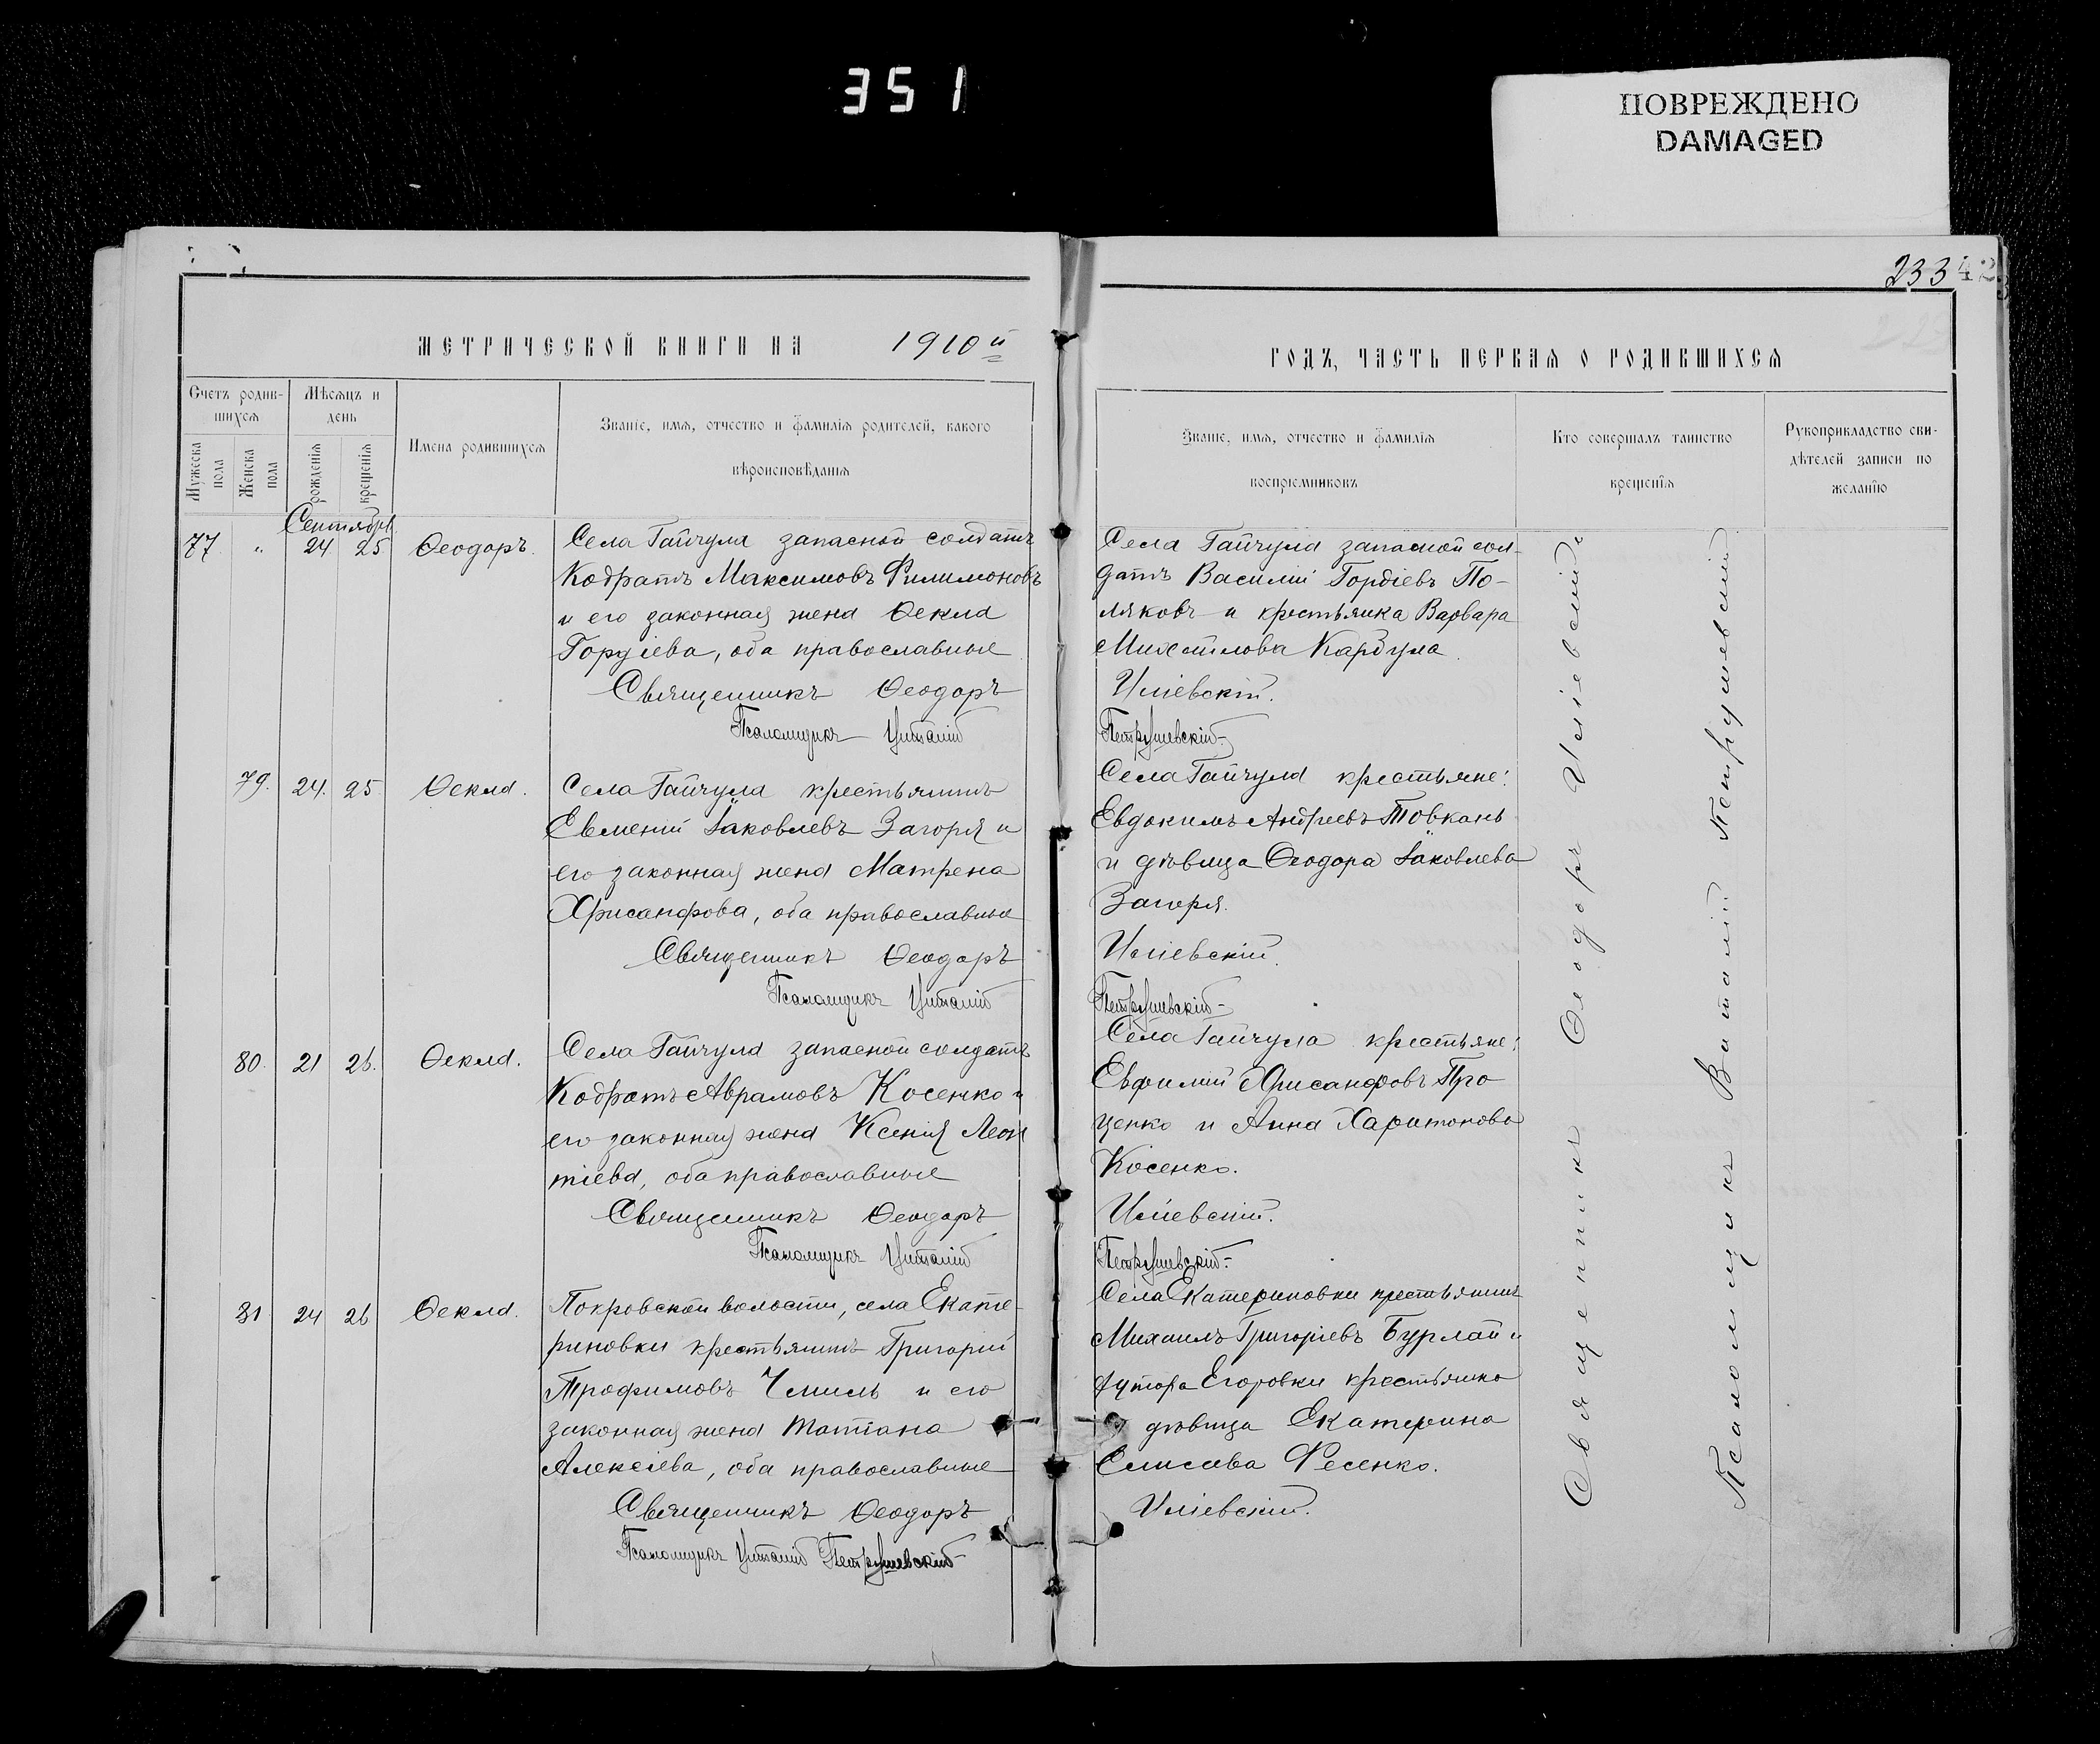 351
ПОВРЕЖДЕНО
DAMAGED
233
МЕТРИЧЕСКОЙ КНИГИ НА 1910й
ГОДЪ, ЧАСТЬ ПЕРВАЯ О РОДИВШИХСЯ
Счетъ родив-
шихся
Мужеска
пола
Женска
пола
Мѣсяцъ и
день
рожденія
крещенія
Имена родившихся
Званіе, имя, отчество и фамилія родителей, какого
вѣроисповѣданія
Званіе, имя, отчество и фамилія
воспріемниковъ
Кто совершалъ таинство
крещенія
Рукоприкладство сви-
дѣтелей записи по
желанію
Сентябрь
77 " 24 25 Ѳеодоръ.
Села Гайчула запасной солдатъ
Кодратъ Максимовъ Филимоновъ
и его законная жена Ѳекла
Гордіева, оба православные
Священникъ Ѳеодоръ
Псаломщикъ Виталій
Села Гайчула запасной сол-
датъ Василій Гордіевъ По-
ляковъ и крестьянка Варвара
Михаилова Кардула.
Иліевскій.
Петрушевскій
79. 24. 25. Ѳекла.
Села Гайчула крестьянинъ
Евменій Іаковлевъ Загоря и
его законная жена Матрена
Хрисанфова, оба православные
Священникъ Ѳеодоръ
Псаломщикъ Виталій
Села Гайчула крестьяне:
Евдокимъ Андреевъ Товкань
и дѣвица Ѳеодора Іаковлева
Загоря.
Иліевскій.
Петрушевскій
80. 21 26. Ѳекла.
Села Гайчула запасной солдатъ
Кодратъ Аврамовъ Косенко и
его законная жена Ксенія Леон
тіева, оба православные
Священникъ Ѳеодоръ
Псаломщикъ Виталій
Села Гайчула крестьяне:
Евфимій Хрисанфовъ Про
ценко и Анна Харитонова
Косенко.
Иліевскій.
Петрушевскій
81 24 26 Ѳекла.
Покровской волости, села Екате-
риновки крестьянинъ Григорій
Трофимовъ Чмиль и его
законная жена Татіана
Алексіева, оба православные
Священникъ Ѳеодоръ
Псаломщикъ Виталій Петрушевскій
Села Екатериновки крестьянинъ
Михаилъ Григоріевъ Бурлай и
хутора Егоровки крестьянка
дѣвица Екатерина
Саввова Фесенко.
Иліевскій.
Священникъ Ѳеодоръ Иліевскій
Псаломщикъ Виталій Петрушевскій